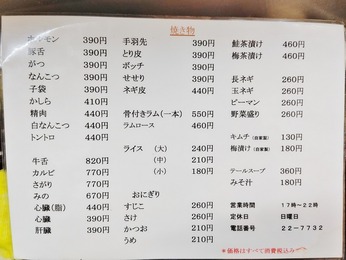 焼き物
ホルモン 390円
豚舌 390円
がつ 390円
なんこつ 390円
子袋 390円
かしら 410円
精肉 440円
白なんこつ 440円
トントロ 440円
牛舌 820円
カルビ 770円
さがり 770円
みの 670円
心臓(脂) 440円
心臓 390円
肝臓 390円
手羽先 390円
とり皮 390円
ボッチ 390円
せせり 390円
ネギ皮 440円
骨付きラム(一本) 550円
ラムロース 460円
ライス (大) 240円
(中) 210円
(小) 180円
おにぎり
すじこ 260円
さけ 260円
かつお 210円
うめ 210円
鮭茶漬け 460円
梅茶漬け 460円
長ネギ 260円
玉ネギ 260円
ピーマン 260円
野菜盛り 260円
キムチ(自家製) 130円
梅漬け(自家製) 180円
テールスープ 360円
みそ汁 180円
営業時間 17時〜22時
定休日 日曜日
電話番号 22-7732
*価格はすべて消費税込み